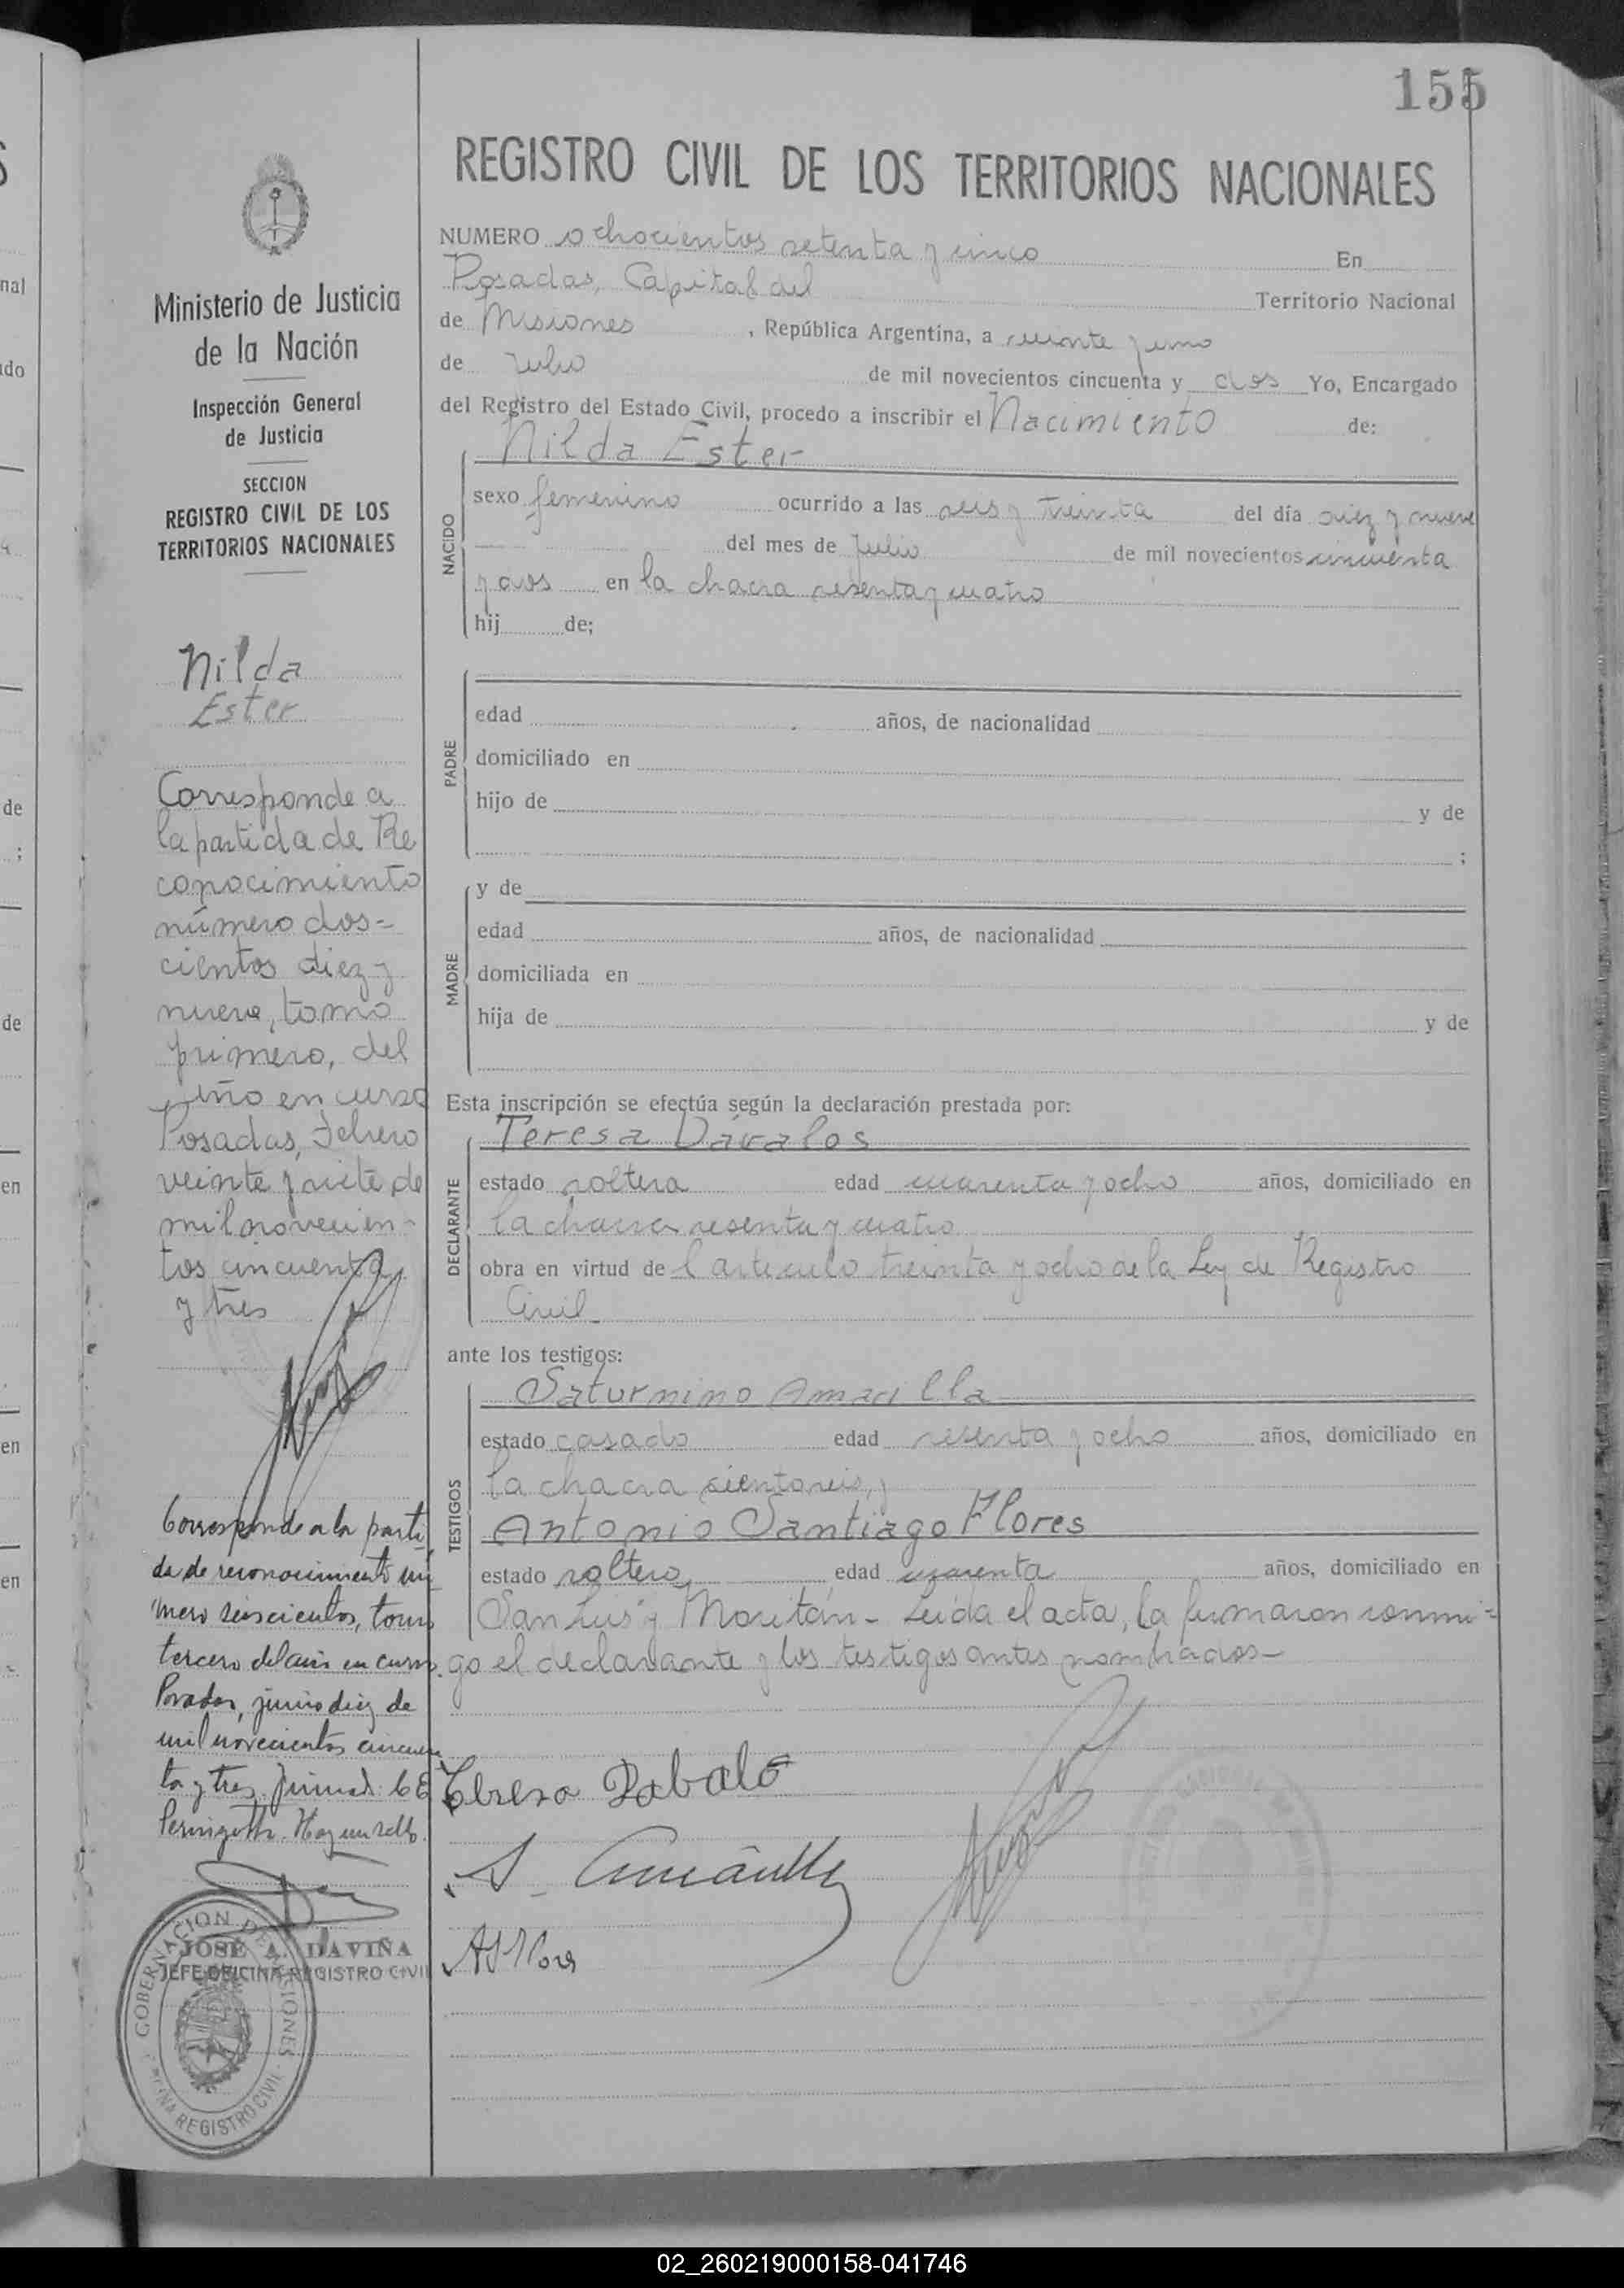 155
REGISTRO CIVIL DE LOS TERRITORIOS NACIONALES
NUMERO ochocientos setenta y cinco En
Posadas, Capital del Territorio Nacional
de Misiones, República Argentina, a veinte y uno
de Julio de mil novecientos cincuenta y dos Yo, Encargado
del Registro del Estado Civil, procedo a inscribir el Nacimiento de:
Nilda Ester
NACIDO
sexo femenino ocurrido a las seis y treinta del día diez y nueve
del mes de Julio de mil novecientos cincuenta
y dos en la chacra sesenta y cuatro
hij de;
PADRE
edad años, de nacionalidad
domiciliado en
hijo de y de
;
MADRE
y de
edad años, de nacionalidad
domiciliada en
hija de y de
Esta inscripción se efectúa según la declaración prestada por:
DECLARANTE
Teresa Dávalos
estado soltera edad cuarenta y ocho años, domiciliado en
la chacra sesenta y cuatro
obra en virtud de l articulo treinta y ocho de la Ley de Registro
Civil
ante los testigos:
TESTIGOS
Saturnino Amarilla
estado casado edad sesenta y ocho años, domiciliado en
la chacra cientoseis, y
Antonio Santiago Flores
estado soltero edad cuarenta años, domiciliado en
San Luis y Moritán - Leída el acta, la firmaron conmi=
go el declarante y los testigos antes nombrados-
Teresa Dabalo
S. Amarilla
ASFlores
Ministerio de Justicia
de la Nación
Inspección General
de Justicia
SECCION
REGISTRO CIVIL DE LOS
TERRITORIOS NACIONALES
Nilda
Ester
Corresponde a
la partida de Re
conocimiento
número dos=
cientos diez y
nueve, tomo
primero, del
año en curso
Posadas, Febrero
veinte y siete de
mil novecien-
tos cincuenta
y tres
Corresponde a la parti
da de reconocimiento nú
mero seiscientos, tomo
tercero del año en curso.
Posadas, junio diez de
mil novecientos cincuen
ta y tres. Firmad: C E
Hay un sello.
JOSÉ A. DAVIÑA
JEFE OFICINA REGISTRO CIVIL
GOBERNACION DE MISIONES
REGISTRO CIVIL
02_260219000158-041746